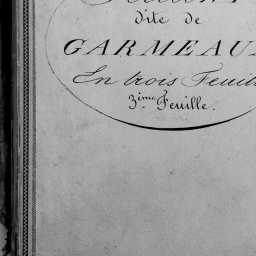 dite de
GARMEAU
En trois Feuill
3ème Feuille.